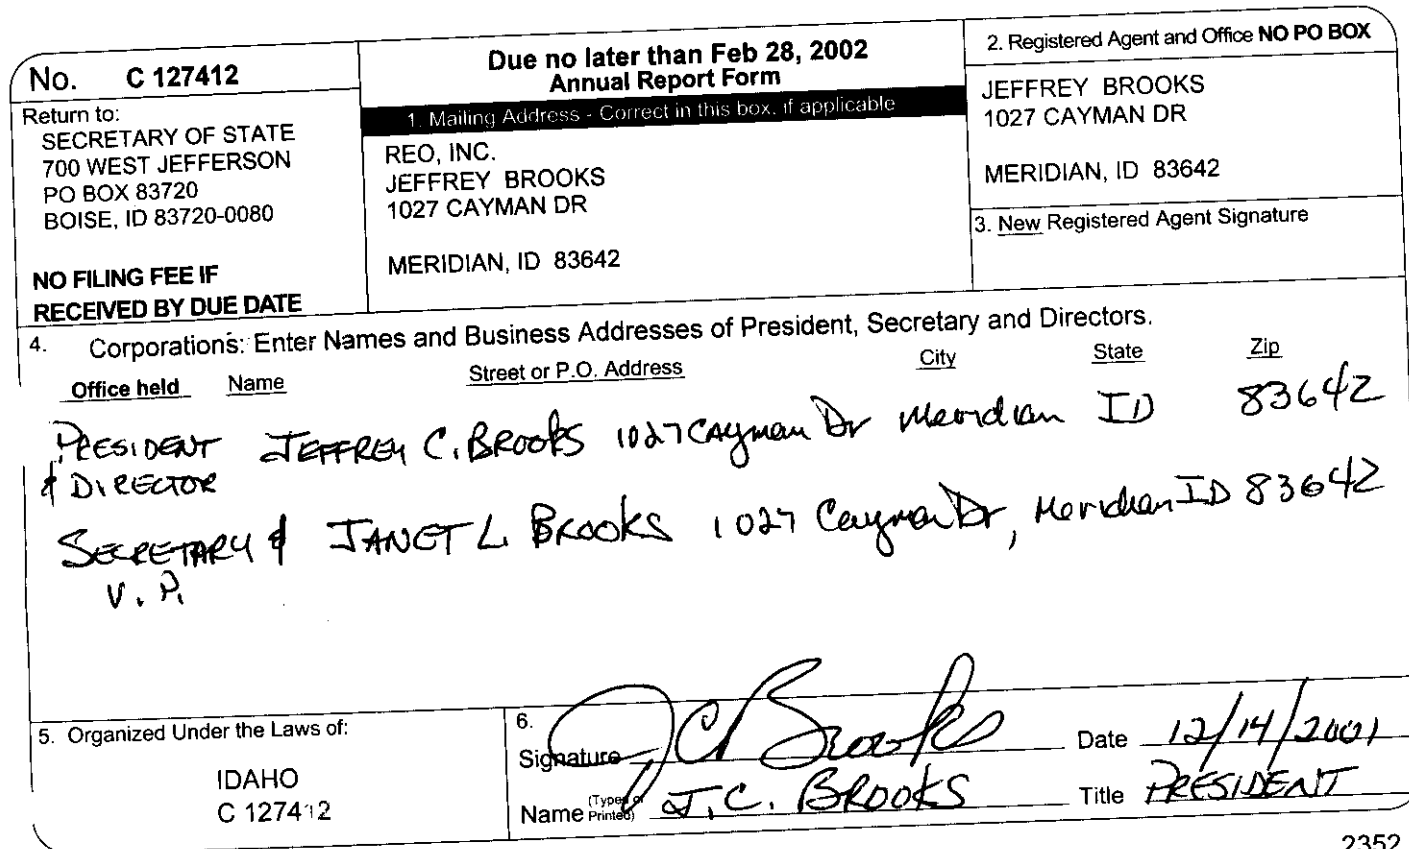 No. C 127412
Return to:
SECRETARY OF STATE
700 WEST JEFFERSON
PO BOX 83720
BOISE, ID 83720-0080
NO FILING FEE IF
RECEIVED BY DUE DATE
Due no later than Feb 28, 2002
Annual Report Form
1. Mailing Address - Correct in this box, if applicable
REO, INC.
JEFFREY BROOKS
1027 CAYMAN DR
MERIDIAN, ID 83642
2. Registered Agent and Office NO PO BOX
JEFFREY BROOKS
1027 CAYMAN DR
MERIDIAN, ID 83642
3. New Registered Agent Signature
4. Corporations: Enter Names and Business Addresses of President, Secretary and Directors.
Office held Name Street or P.O. Address City State Zip
PRESIDENT JEFFREY C. BROOKS 1027 Cayman Dr Meridian ID 83642
& DIRECTOR
SECRETARY & JANET L. BROOKS 1027 Cayman Dr, Meridian ID 83642
V. P.
5. Organized Under the Laws of:
IDAHO
C 127412
6.
Signature JC Brooks Date 12/14/2001
Name (Typed or Printed) J.C. BROOKS Title PRESIDENT
2352